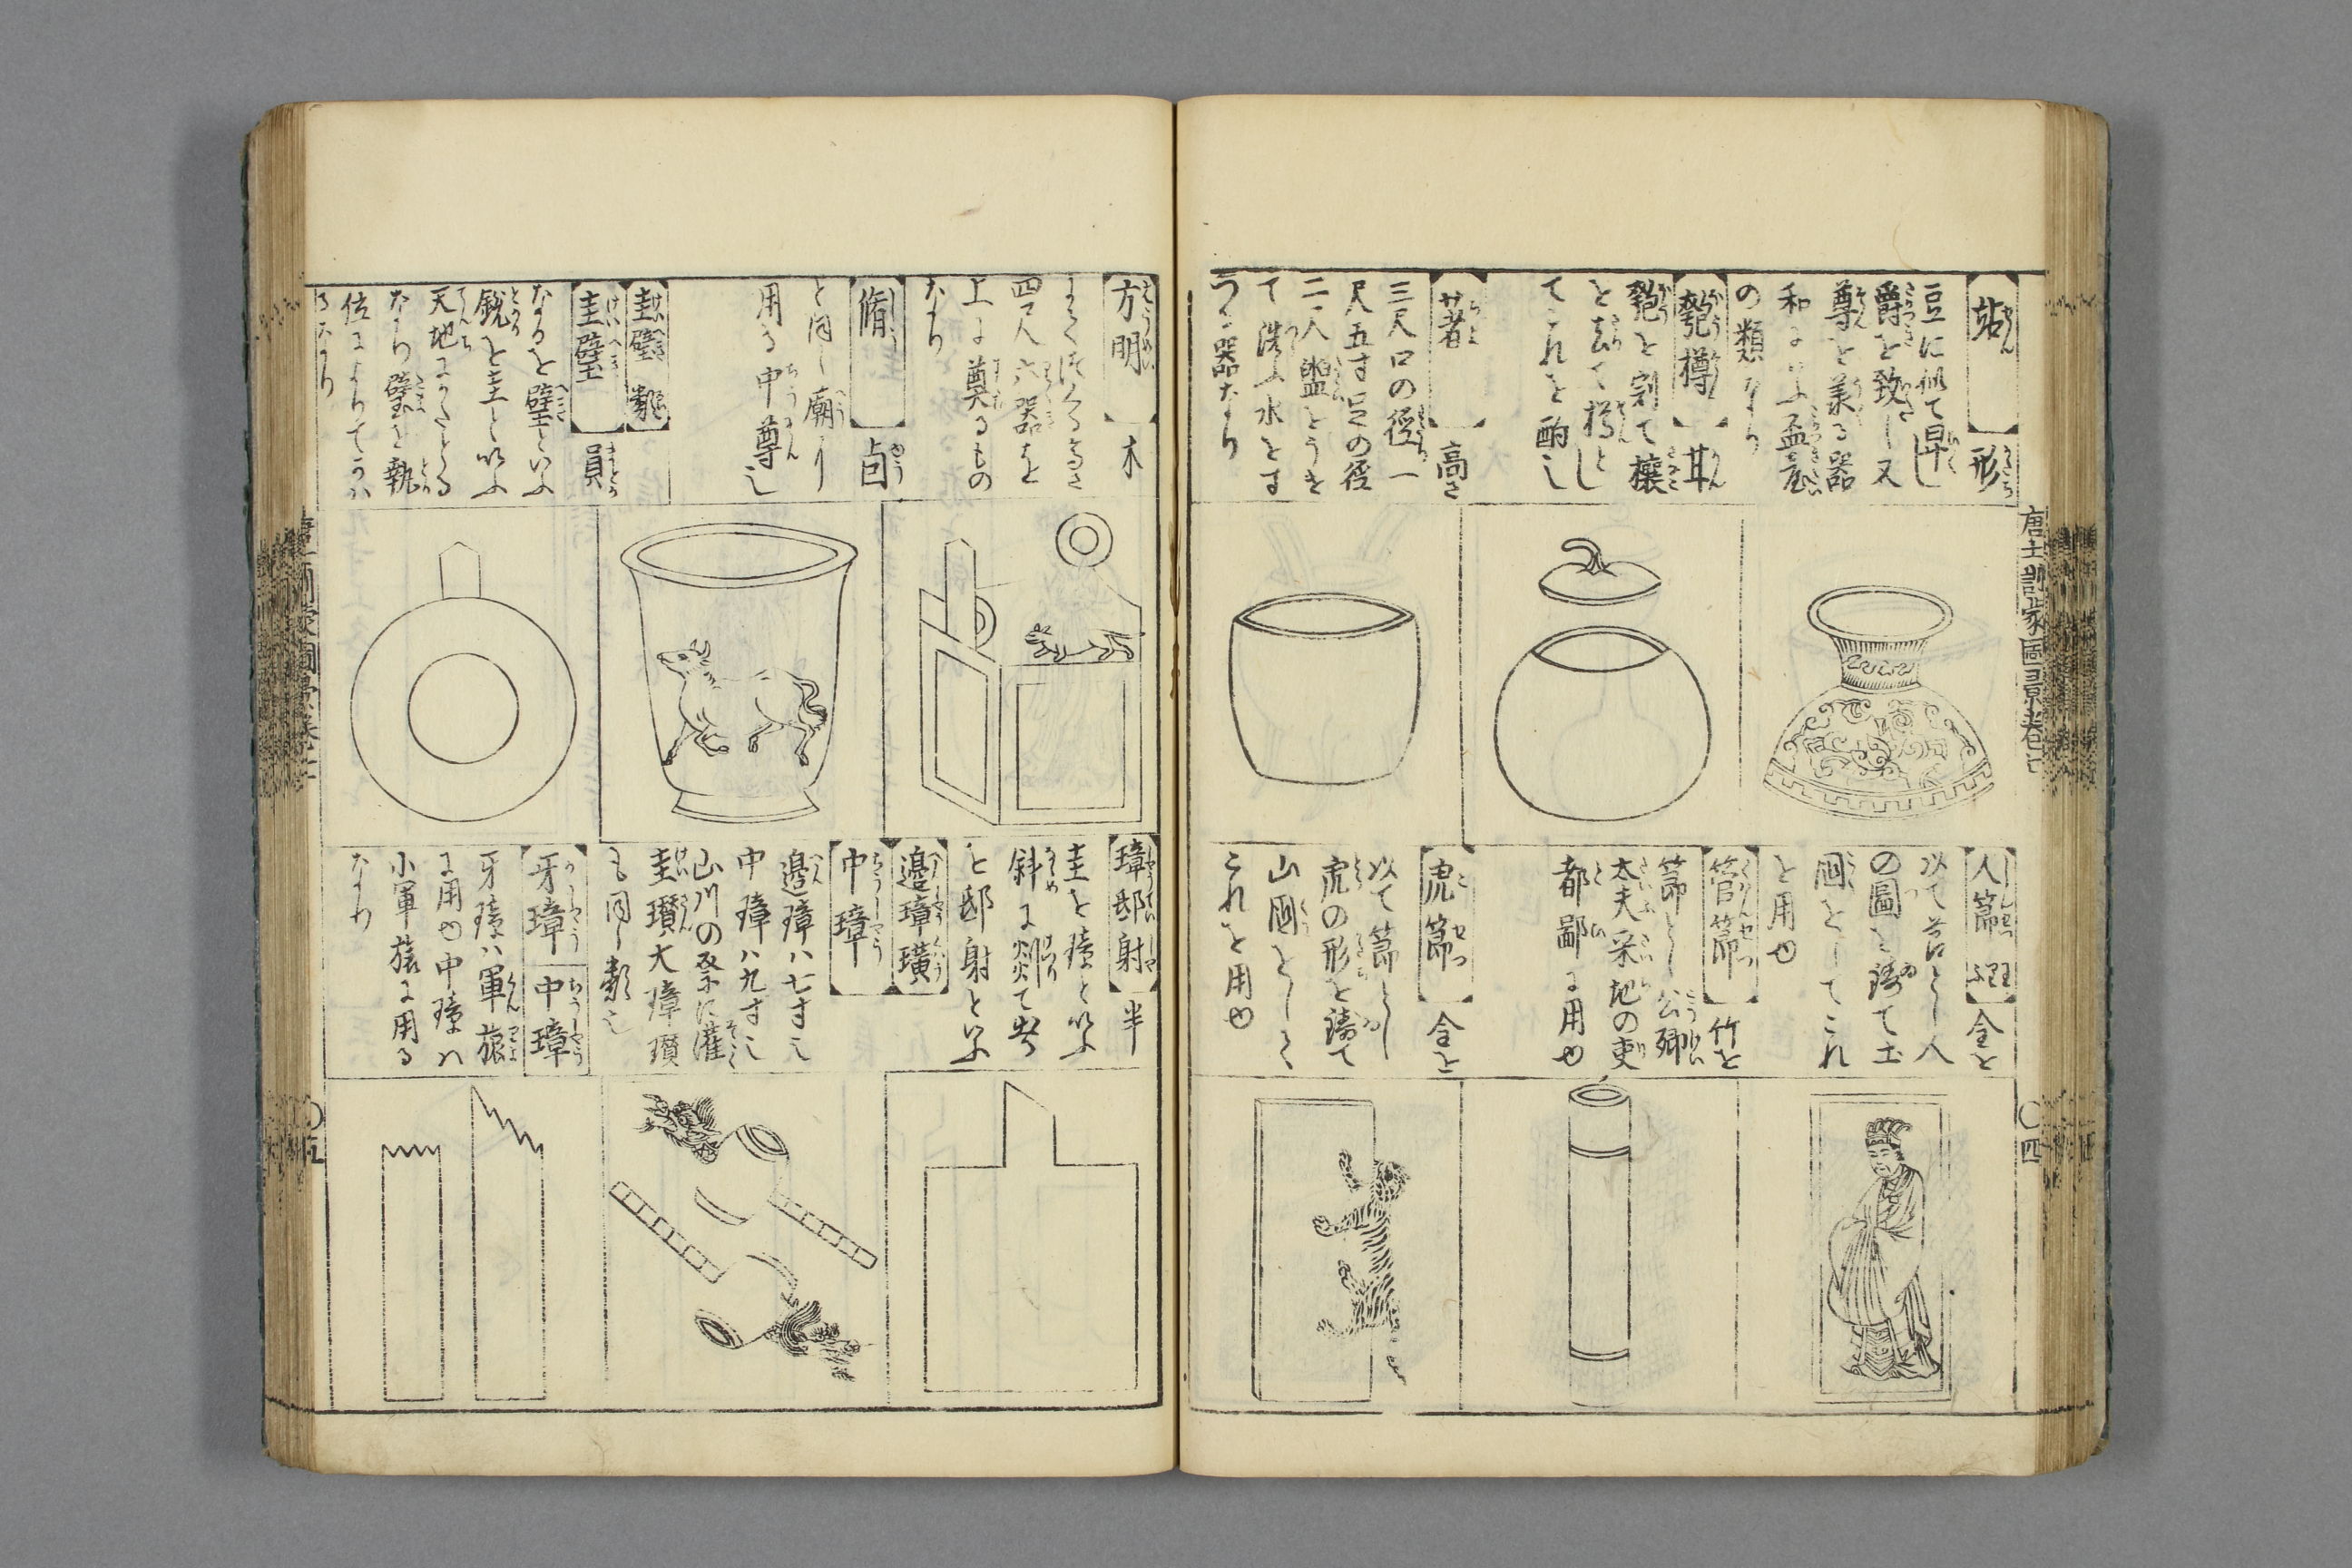 坫 形
豆に似て卑し
爵を致し又
尊を美る器
の類なり
匏樽
匏を割て穰
を去て樽とし
てこれを酌し
著 高さ
三尺口の徑一
尺五寸足の徑
二人盥とうき
て洗ふ水をす
つる器なり
人節
の圖を鋳て土
國としてこれ
を用ゆ
管節 竹を
節とし公卿
大夫采地の吏
都鄙に用ゆ
虎節 金を
以て節とし
虎の形を鋳て
山國としてこ
これを用ゆ
唐土訓蒙圖彙巻七
〇四
方明 木
四尺六器を
上に奠るもの
なり
脩 卣
と同し廟に
用る中尊し
圭璧
圭璧 員
なるを璧といふ
鋭を圭といふ
天地にかたとる
なり璧を執
位によりてかハ
るなり
璋邸射 半
圭を璋といふ
斜に剡て出
を邸射といふ
邊璋瓚
中璋
邊璋ハ七寸し
中璋ハ九寸し
山川の祭に灌
圭瓚大璋瓚
も同し類し
牙璋 中璋
牙璋ハ軍旅
に用ゆ中璋ハ
小軍旅に用る
なり
〇五